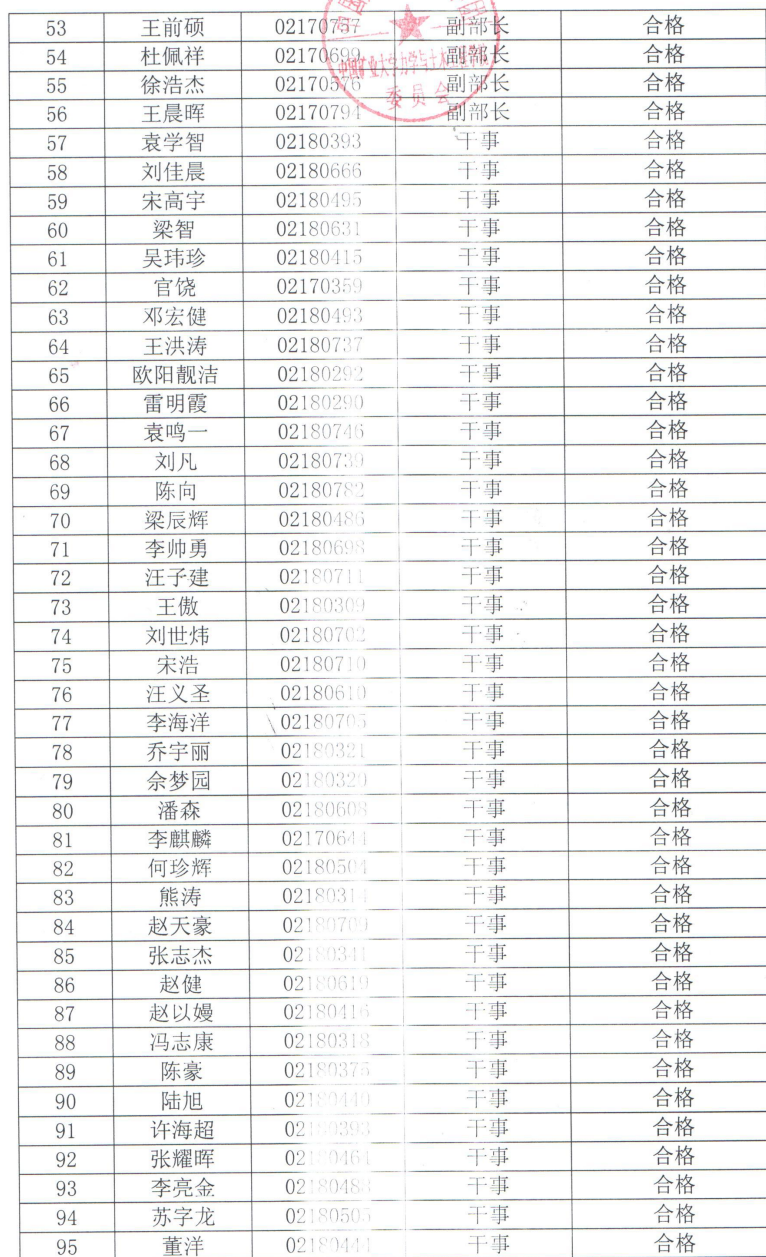 53 王前硕 02170757 副部长 合格
54 杜佩祥 02170699 副部长 合格
55 徐浩杰 02170576 副部长 合格
56 王晨晖 02170794 副部长 合格
委员会
57 袁学智 02180393 干事 合格
58 刘佳晨 02180666 干事 合格
59 宋高宇 02180495 干事 合格
60 梁智 02180631 干事 合格
61 吴玮珍 02180415 干事 合格
62 官饶 02170359 干事 合格
63 邓宏健 02180493 干事 合格
64 王洪涛 02180737 干事 合格
65 欧阳靓洁 02180292 干事 合格
66 雷明霞 02180290 干事 合格
67 袁鸣一 02180746 干事 合格
68 刘凡 02180739 干事 合格
69 陈向 02180782 干事 合格
70 梁辰辉 02180486 干事 合格
71 李帅勇 02180698 干事 合格
72 汪子建 02180711 干事 合格
73 王傲 02180309 干事 合格
74 刘世炜 02180702 干事 合格
75 宋浩 02180710 干事 合格
76 汪义圣 02180610 干事 合格
77 李海洋 02180705 干事 合格
78 乔宇丽 02180321 干事 合格
79 佘梦园 02180320 干事 合格
80 潘森 02180608 干事 合格
81 李麒麟 02170644 干事 合格
82 何珍辉 02180504 干事 合格
83 熊涛 02180314 干事 合格
84 赵天豪 02180709 干事 合格
85 张志杰 02180341 干事 合格
86 赵健 02180619 干事 合格
87 赵以嫚 02180416 干事 合格
88 冯志康 02180318 干事 合格
89 陈豪 02180375 干事 合格
90 陆旭 02180440 干事 合格
91 许海超 02180393 干事 合格
92 张耀晖 02180464 干事 合格
93 李亮金 02180488 干事 合格
94 苏字龙 02180505 干事 合格
95 董洋 02180444 干事 合格